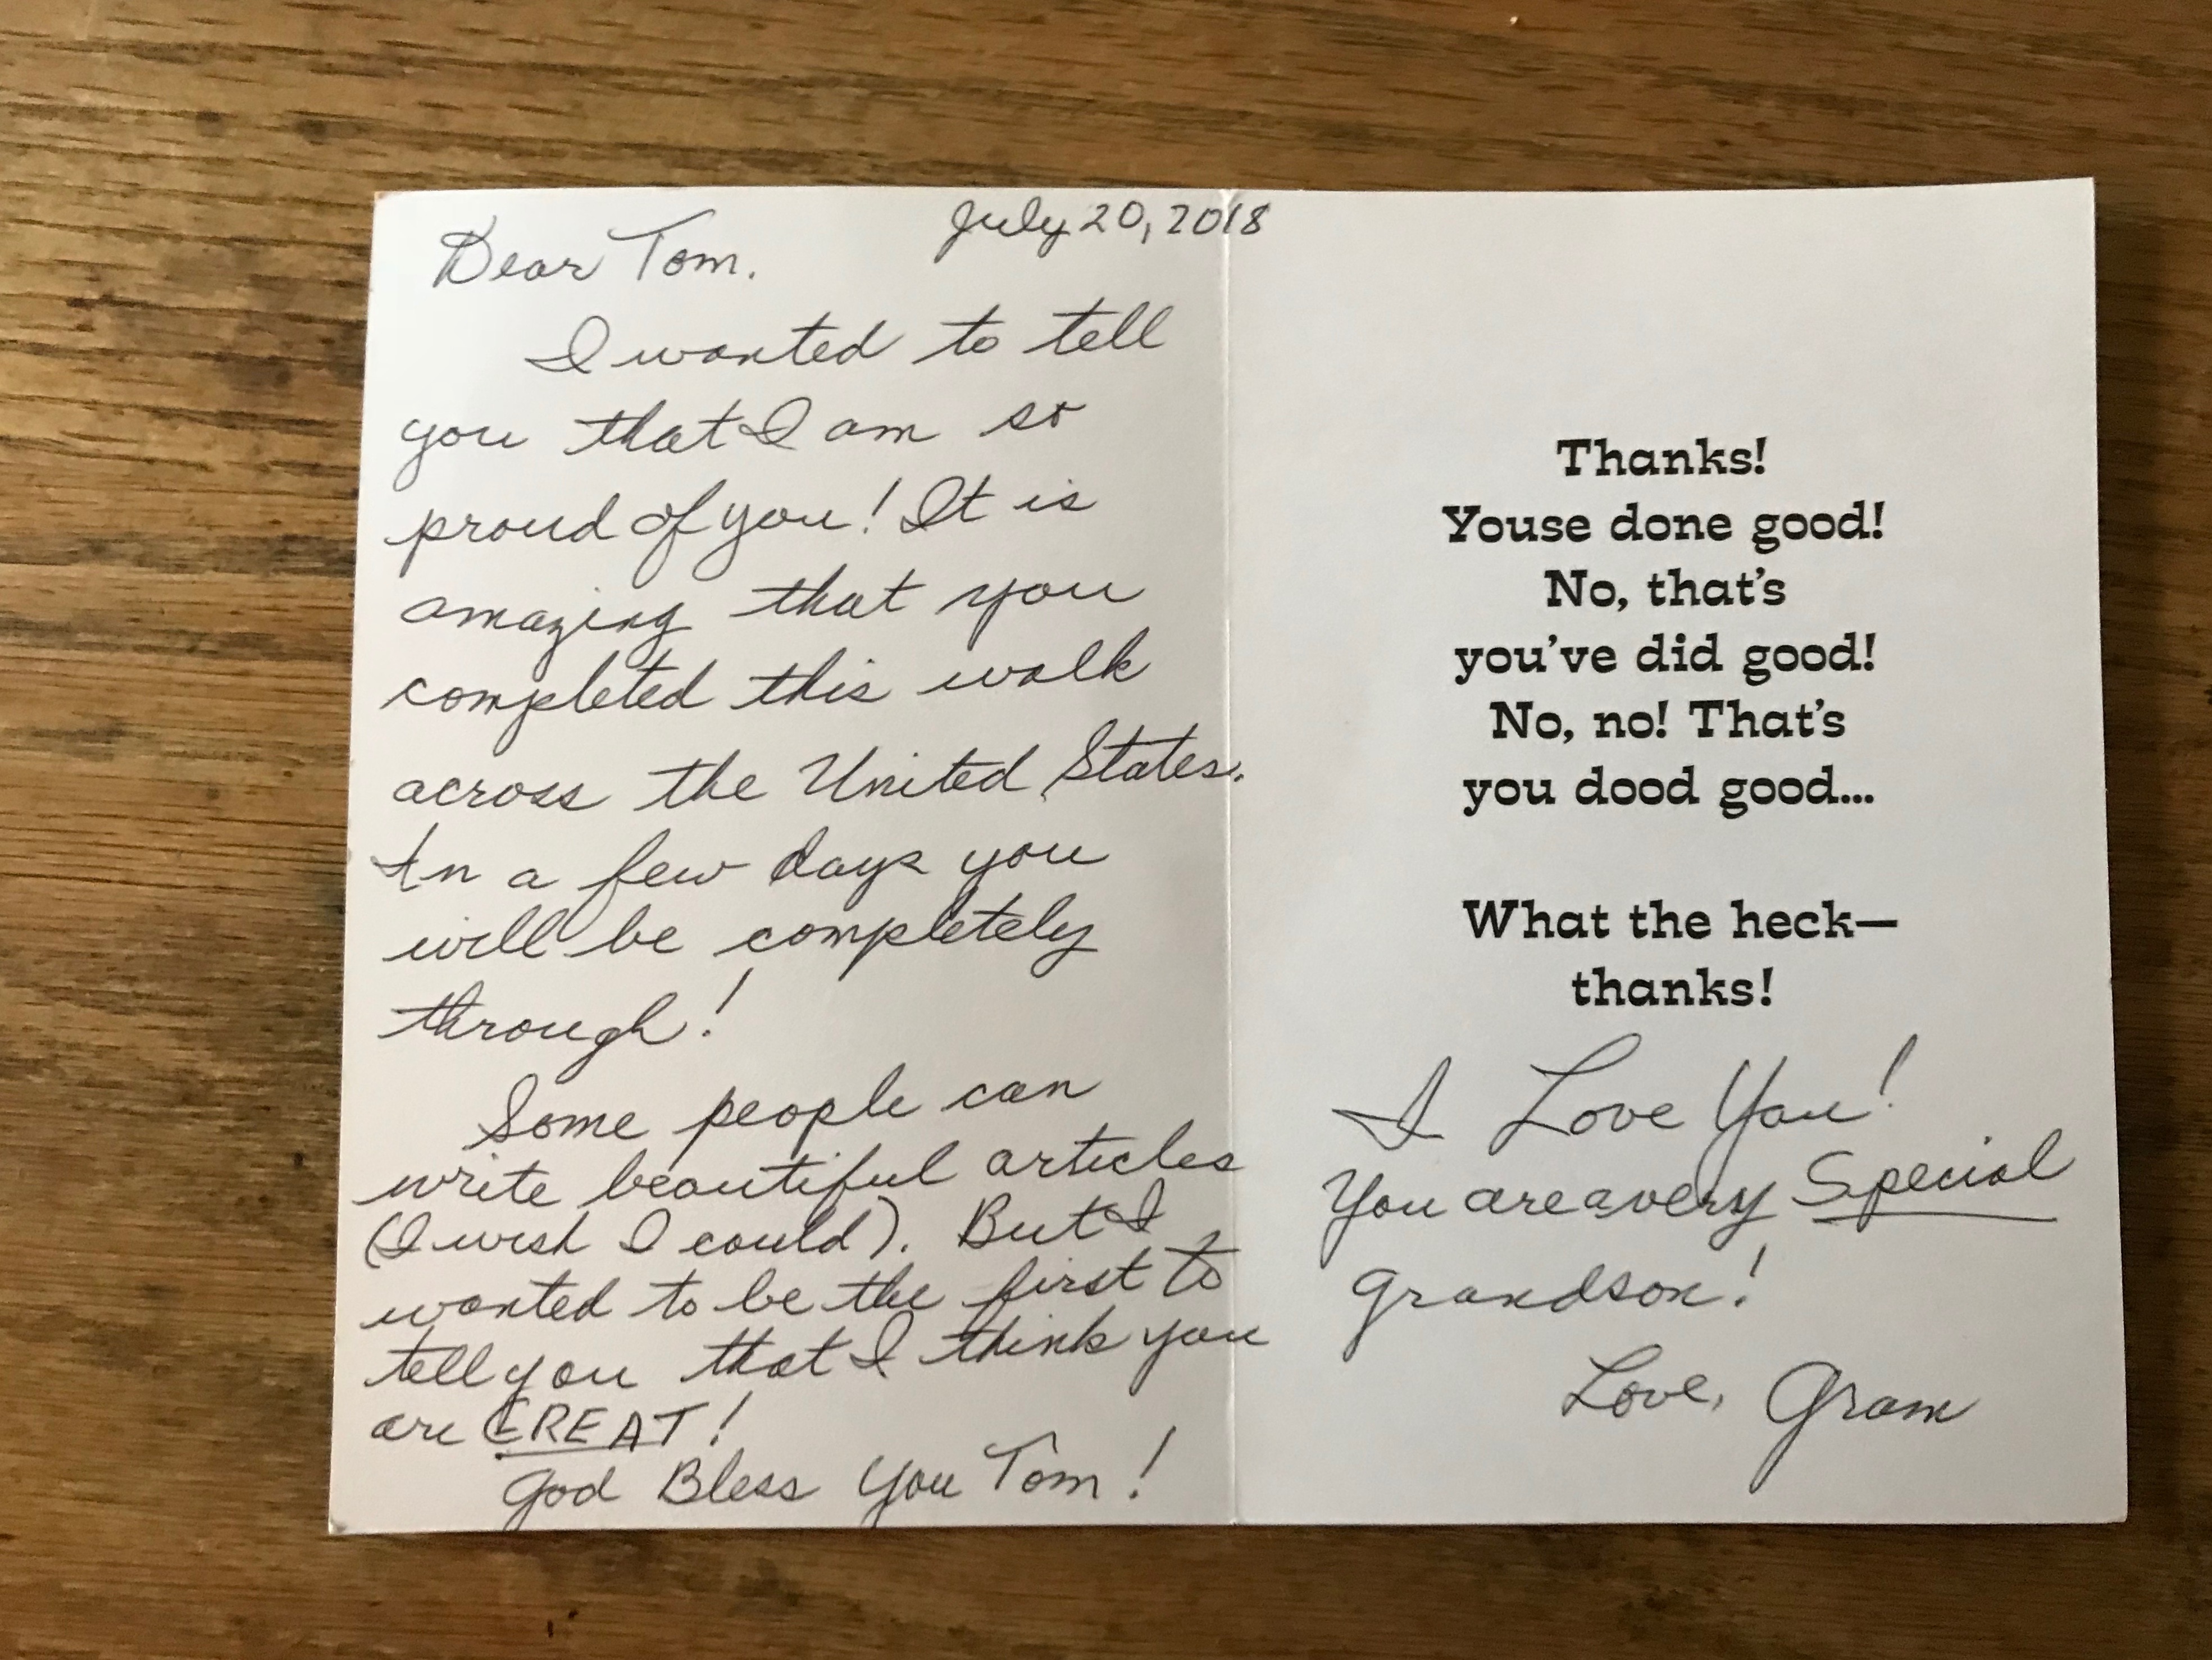 July 20, 2018
Dear Tom.
I wanted to tell
you that I am so
proud of you! It is
amazing that you
completed this walk
across the United States.
In a few days you
will be completely
through!
Some people can
write beautiful articles
(I wish I could). But I
wanted to be the first to
tell you that I think you
are GREAT!
God Bless You Tom!
Thanks!
Youse done good!
No, that's
you've did good!
No, no! That's
you dood good...
What the heck—
thanks!
I Love You!
You are a very Special
Grandson!
Love, Gram